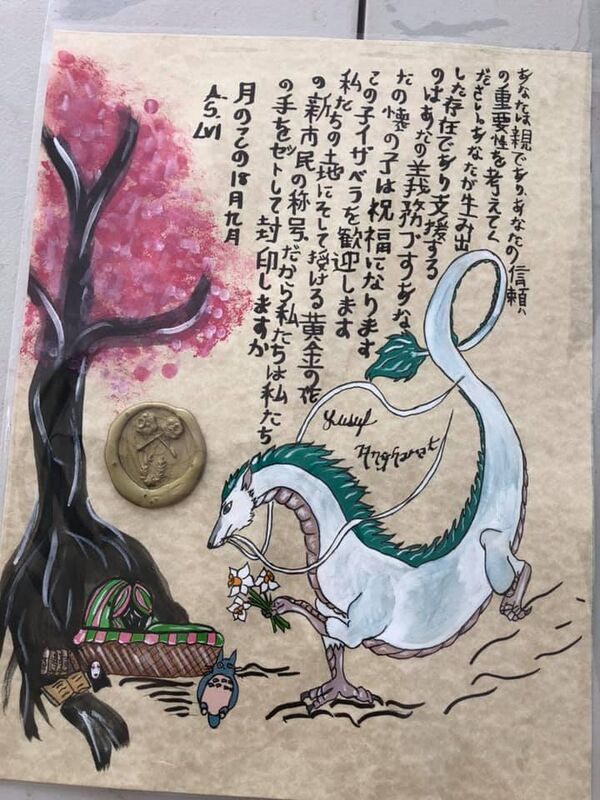 あなたは親であり、あなたの信頼
の重要性を考えてく
ださい。あなたが生み出
した存在であり支援する
のはあたの義務です。あな
たの懐の子は祝福になります
この子イザベラを歓迎します
私たちの地にそして授ける黄金の花
の新市民の称号。だから私たちは私たち
の手をセットして封印しますか
月のこの18日九月
A.S. LVI
Yusuf
Angharat